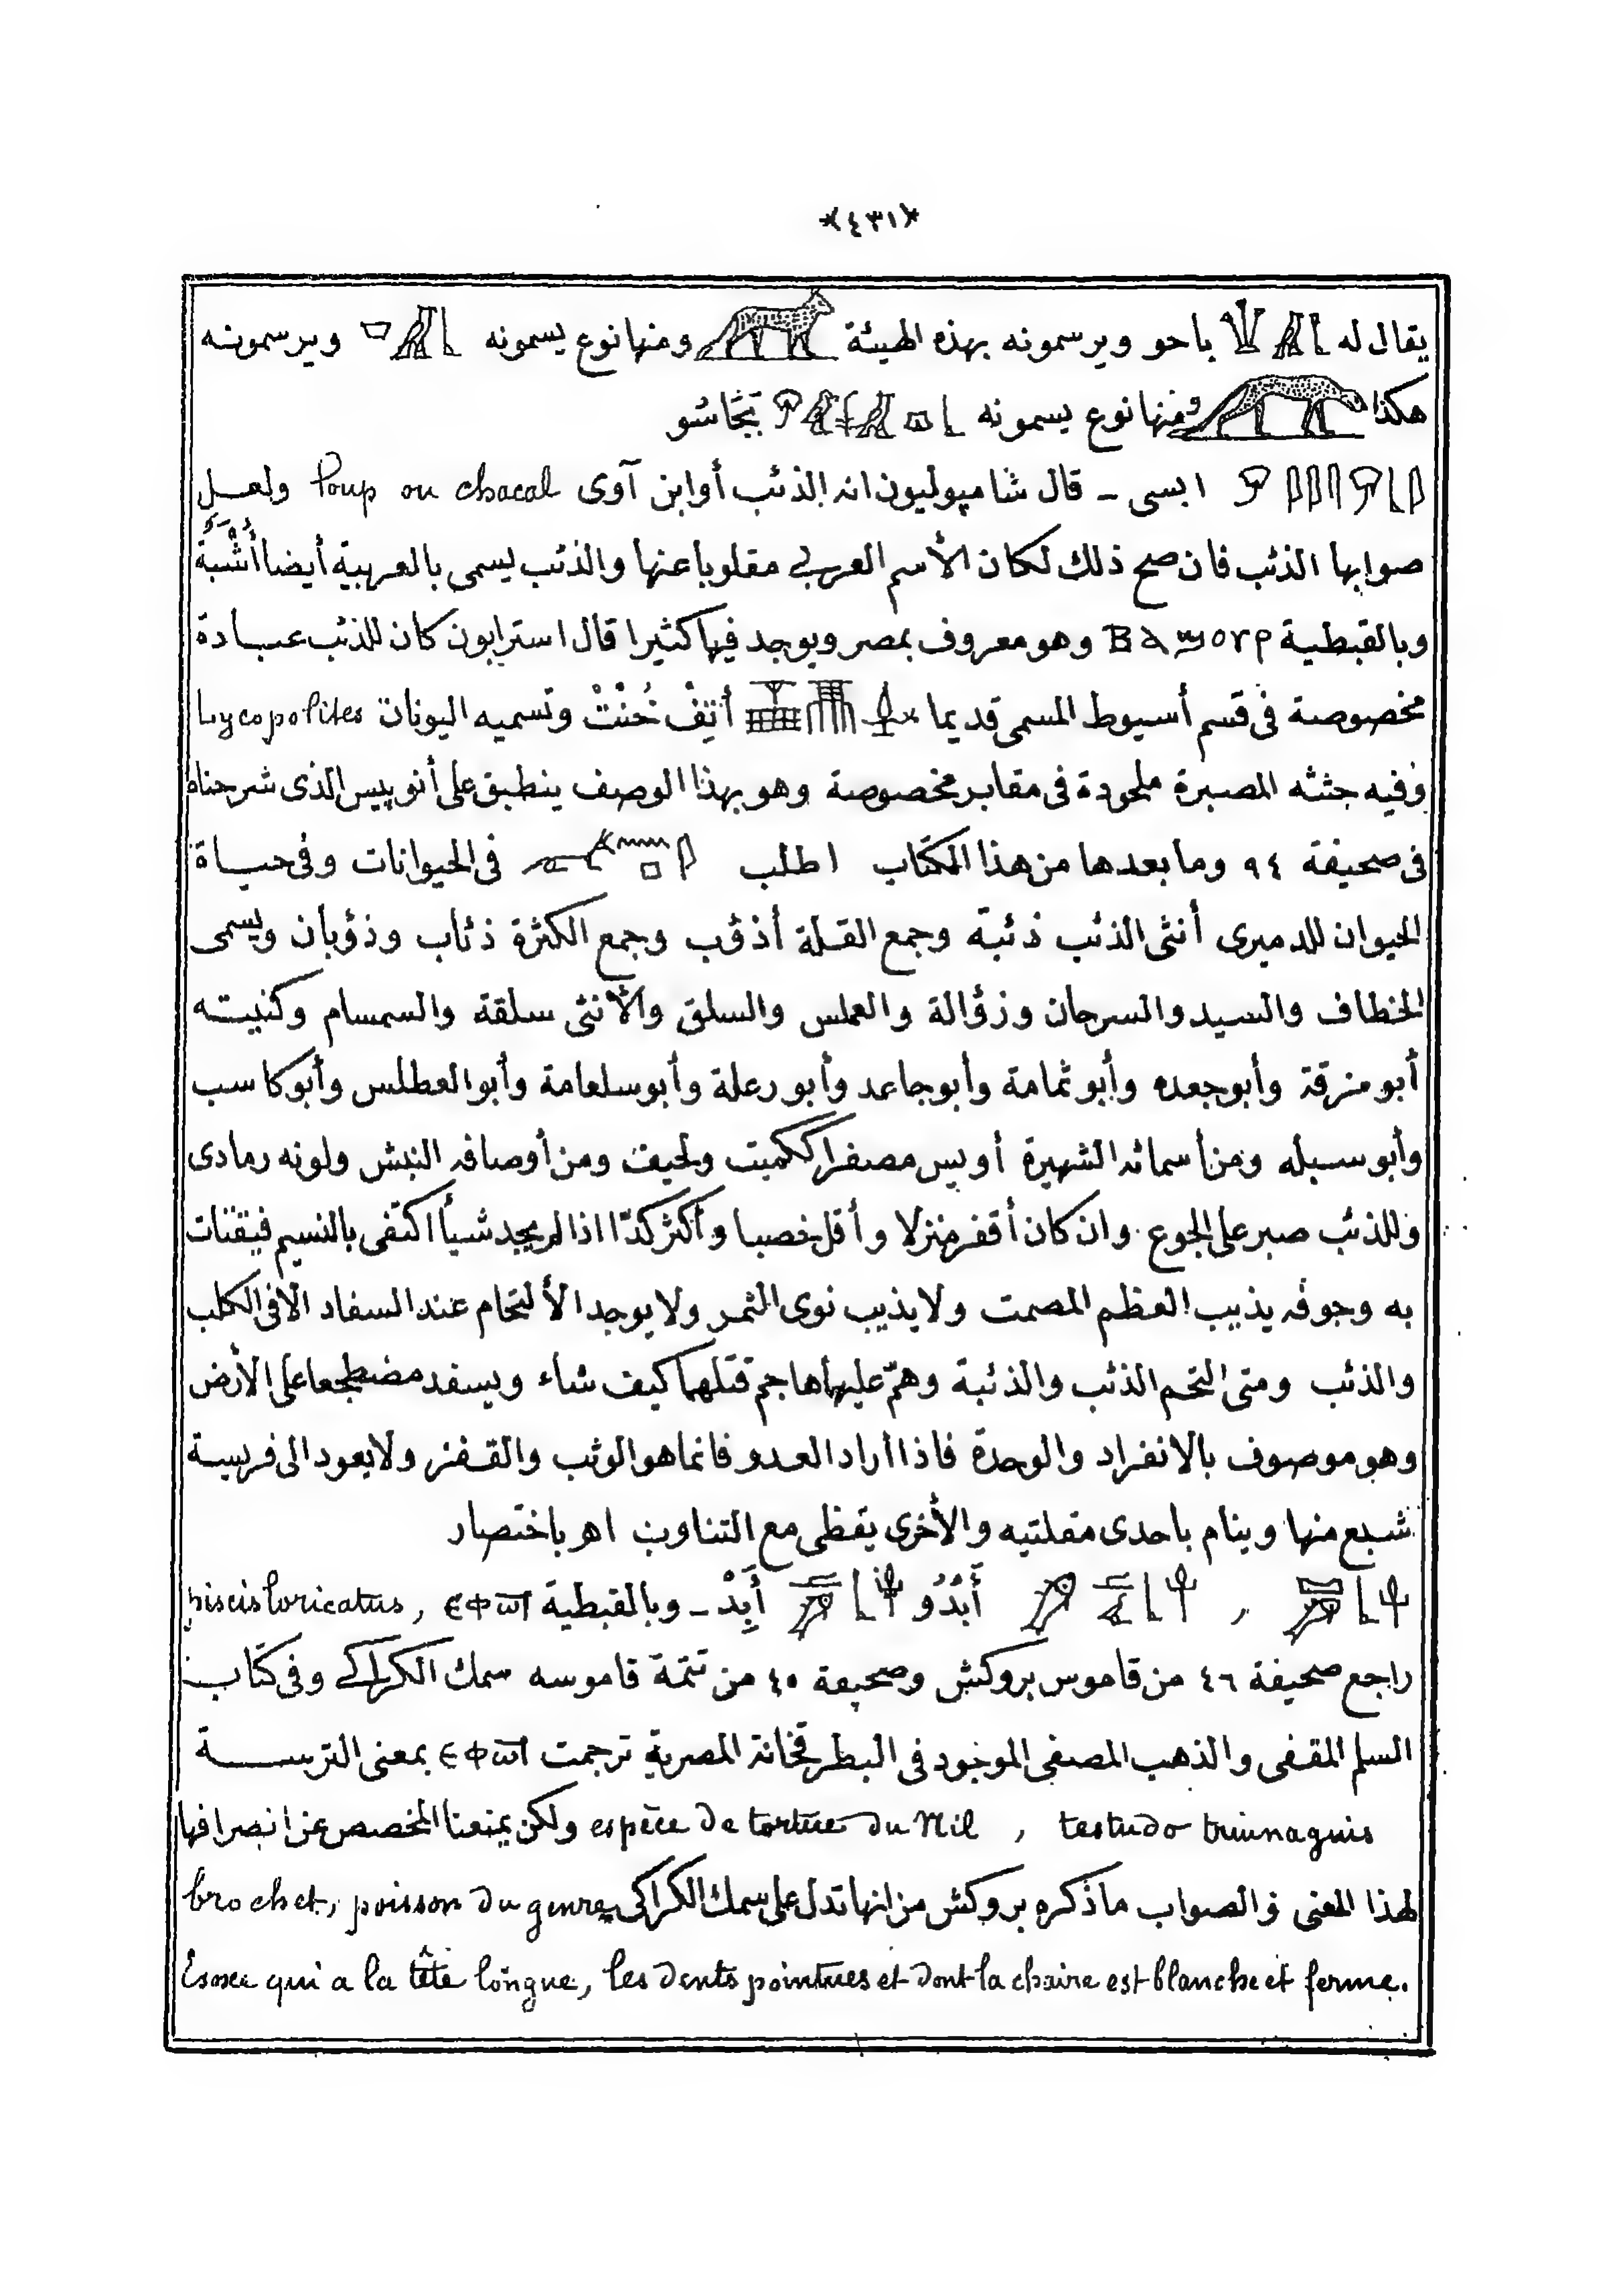 *(٤٣١)*
يقال له باحو ويرسمونه بهذه الهيئة ومنها نوع يسمونه ويرسمونه
هكذا ومنها نوع يسمونه
ابسى – قال شامپوليون انه الذئب أو ابن آوى loup ou chacal ولعل
صوابها الذئب فان صح ذلك لكان الأسم العربي مقلوبا عنها والذئب يسمى بالعربية أيضا أُشْبَةَ
وبالقبطية Ⲃⲁϣⲟⲩⲣ وهو معروف بمصر ويوجد فيها كثيرا قال استرابون كان للذئب عبادة
مخصوصة في قسم أسيوط المسمى قديما أتِفْ خُنْتْ وتسميه اليونان Lycopolites
وفيه جثثه المصبرة ملحودة فى مقابر مخصوصة وهو بهذا الوصف ينطبق على أنوبيس الذى شرحناه
فى صحيفة ٩٤ وما بعدها من هذا الكتاب اطلب فى الحيوانات وفى حياة
الحيوان للدميرى أنثى الذئب ذئبة وجمع القلة أذؤب وجمع الكثرة ذئاب وذؤبان ويسمى
الخطاف والسيد والسرحان وذؤالة والعملس والسلق والأنثى سلقة والسمسام وكنيته
أبو مزقة وأبو جعده وأبو ثمامة وأبو جاعد وأبو رعلة وأبو سلعامة وأبو العطلس وأبو كاسب
وأبو سبله ومن أسمائه الشهيرة أويس مصغرا ككميت ولحيف ومن أوصافه النبش ولونه رمادى
وللذئب صبر على الجوع وان كان أقفر منزلا وأقل خصبا وأكثر كدّا اذا لم يجد شيأ اكتفى بالنسيم فيقتات
به وجوفه يذيب العظم المصمت ولا يذيب نوى الثمر ولا يوجد الألتحام عند السفاد الا فى الكلب
والذئب ومتى التحم الذئب والذئبة وهمّ عليهما هاجم قتلهما كيف شاء ويسفد مضطجعا على الأرض
وهو موصوف بالانفراد والوحدة فاذا أراد العدو فانما هو الوثب والقفز ولا يعود الى فريسة
شبع منها وينام باحدى مقلتيه والأخرى يقظى مع التناوب اهـ باختصار
، أَبْدُو أَبِدْ – وبالقبطية ⲉⲫⲱⲧ , piscis loricatus
راجع صحيفة ٤٦ من قاموس بروكش وصحيفة ٤٥ من تتمة قاموسه سمك الكراكى وفى كتاب
السلم المقفى والذهب المصفى الموجود فى البطرقخانة المصرية ترجمت ⲉⲫⲱⲧ بمعنى الترسة
testudo triunaguis , espèce de tortue du Nil ولكن يمنعنا المخصص عن انصرافها
لهذا المعنى فالصواب ما ذكره بروكش من انها تدل على سمك الكراكى brochet, poisson du genre
Esoxe qui a la tête longue, les dents pointues et dont la chaire est blanche et ferme.